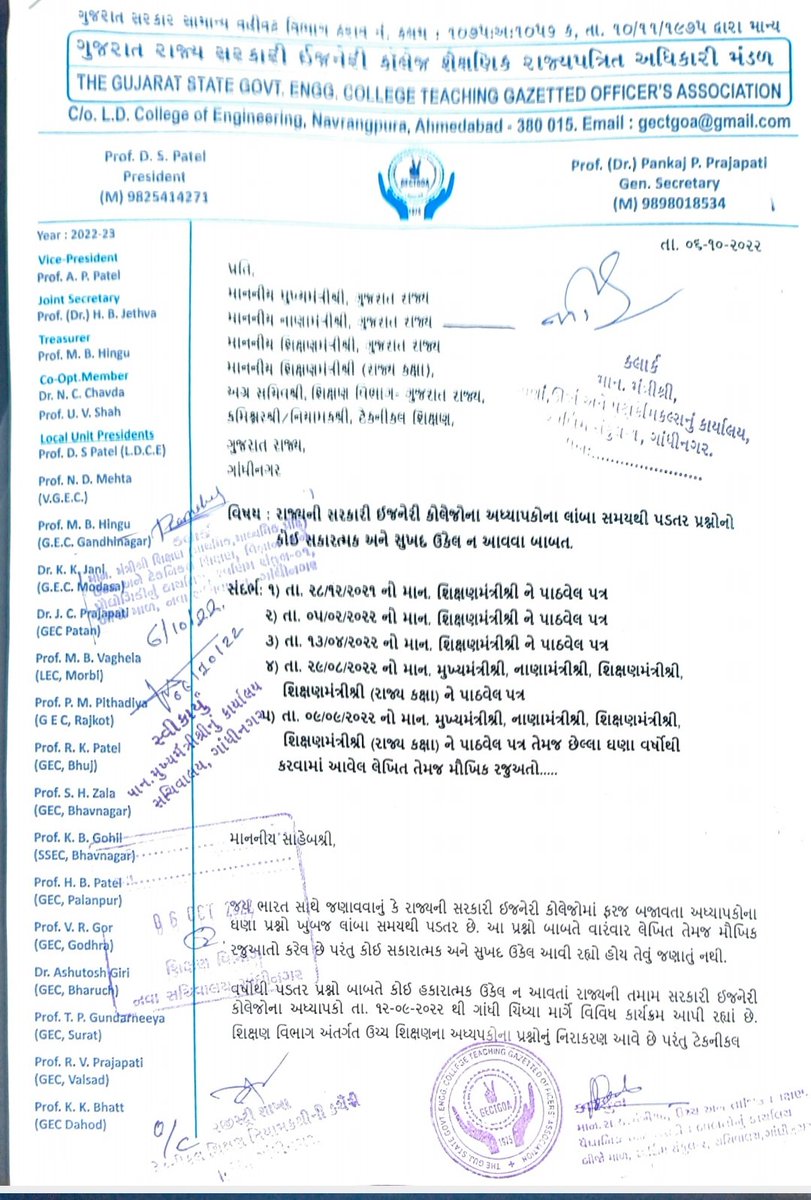 ગુજરાત સરકાર સામાન્ય વહીવટ વિભાગ ઠરાવ નં. ક્રમાંક : ૧૦૭૫:અ:૧૦૫૧ ક, તા. ૧૦/૧૧/૧૯૭૫ દ્વારા માન્ય
ગુજરાત રાજ્ય સરકારી ઈજનેરી કૉલેજ શૈક્ષણિક રાજ્યપત્રિત અધિકારી મંડળ
THE GUJARAT STATE GOVT. ENGG. COLLEGE TEACHING GAZETTED OFFICER'S ASSOCIATION
C/o. L.D. College of Engineering, Navrangpura, Ahmedabad - 380 015. Email : gectgoa@gmail.com
Prof. D. S. Patel
President
(M) 9825414271
GECTGOA
1975
Prof. (Dr.) Pankaj P. Prajapati
Gen. Secretary
(M) 9898018534
Year : 2022-23
Vice-President
Prof. A. P. Patel
Joint Secretary
Prof. (Dr.) H. B. Jethva
Treasurer
Prof. M. B. Hingu
Co-Opt.Member
Dr. N. C. Chavda
Prof. U. V. Shah
Local Unit Presidents
Prof. D. S Patel (L.D.C.E)
Prof. N. D. Mehta
(V.G.E.C.)
Prof. M. B. Hingu
(G.E.C. Gandhinagar)
Dr. K. K. Jani
(G.E.C. Modasa)
Dr. J. C. Prajapati
(GEC Patan)
Prof. M. B. Vaghela
(LEC, Morbi)
Prof. P. M. Pithadiya
(G E C, Rajkot)
Prof. R. K. Patel
(GEC, Bhuj)
Prof. S. H. Zala
(GEC, Bhavnagar)
Prof. K. B. Gohil
(SSEC, Bhavnagar)
Prof. H. B. Patel
(GEC, Palanpur)
Prof. V. R. Gor
(GEC, Godhra)
Dr. Ashutosh Giri
(GEC, Bharuch)
Prof. T. P. Gundarneeya
(GEC, Surat)
Prof. R. V. Prajapati
(GEC, Valsad)
Prof. K. K. Bhatt
(GEC Dahod)
તા. ૦૬-૧૦-૨૦૨૨
પ્રતિ,
માનનીય મુખ્યમંત્રીશ્રી, ગુજરાત રાજ્ય
માનનીય નાણામંત્રીશ્રી, ગુજરાત રાજ્ય
માનનીય શિક્ષણમંત્રીશ્રી, ગુજરાત રાજ્ય
માનનીય શિક્ષણમંત્રીશ્રી (રાજ્ય કક્ષા),
અગ્ર સચિવશ્રી, શિક્ષણ વિભાગ- ગુજરાત રાજ્ય,
કમિશ્નરશ્રી/નિયામકશ્રી, ટેકનીકલ શિક્ષણ,
ગુજરાત રાજ્ય,
ગાંધીનગર
કલાર્ક
માન. મંત્રીશ્રી,
નાણાં, ઊર્જા અને પેટ્રોકેમિકલ્સનું કાર્યાલય,
ગાંધીનગર.
વિષય : રાજ્યની સરકારી ઈજનેરી કોલેજોના અધ્યાપકોના લાંબા સમયથી પડતર પ્રશ્નોનો
કોઈ સકારત્મક અને સુખદ ઉકેલ ન આવવા બાબત.
સંદર્ભ: ૧) તા. ૨૮/૧૨/૨૦૨૧ નો માન. શિક્ષણમંત્રીશ્રી ને પાઠવેલ પત્ર
૨) તા. ૦૫/૦૨/૨૦૨૨ નો માન. શિક્ષણમંત્રીશ્રી ને પાઠવેલ પત્ર
૩) તા. ૧૩/૦૪/૨૦૨૨ નો માન. શિક્ષણમંત્રીશ્રી ને પાઠવેલ પત્ર
૪) તા. ૨૯/૦૮/૨૦૨૨ નો માન. મુખ્યમંત્રીશ્રી, નાણામંત્રીશ્રી, શિક્ષણમંત્રીશ્રી,
શિક્ષણમંત્રીશ્રી (રાજ્ય કક્ષા) ને પાઠવેલ પત્ર
૫) તા. ૦૯/૦૯/૨૦૨૨ નો માન. મુખ્યમંત્રીશ્રી, નાણામંત્રીશ્રી, શિક્ષણમંત્રીશ્રી,
શિક્ષણમંત્રીશ્રી (રાજ્ય કક્ષા) ને પાઠવેલ પત્ર તેમજ છેલ્લા ઘણા વર્ષોથી
કરવામાં આવેલ લેખિત તેમજ મૌખિક રજુઅતો.....
6/10/22
06/10/22
સ્વીકાર્યું
માન. મુખ્યમંત્રીશ્રીનું કાર્યાલય
સચિવાલય, ગાંધીનગર
માનનીય સાહેબશ્રી,
જય ભારત સાથે જણાવવાનું કે રાજ્યની સરકારી ઈજનેરી કોલેજોમાં ફરજ બજાવતા અધ્યાપકોના
ઘણા પ્રશ્નો ખુબજ લાંબા સમયથી પડતર છે. આ પ્રશ્નો બાબતે વારંવાર લેખિત તેમજ મૌખિક
રજુઆતો કરેલ છે પરંતુ કોઈ સકારાત્મક અને સુખદ ઉકેલ આવી રહ્યો હોય તેવું જણાતું નથી.
06 OCT
શિક્ષણ વિભાગ
નવા સચિવાલય, ગાંધીનગર
વર્ષોથી પડતર પ્રશ્નો બાબતે કોઈ હકારાત્મક ઉકેલ ન આવતાં રાજ્યની તમામ સરકારી ઈજનેરી
કોલેજોના અધ્યાપકો તા. ૧૨-૦૯-૨૦૨૨ થી ગાંધી ચિંધ્યા માર્ગે વિવિધ કાર્યક્રમ આપી રહ્યાં છે.
શિક્ષણ વિભાગ અંતર્ગત ઉચ્ચ શિક્ષણના અધ્યપકોના પ્રશ્નોનું નિરાકરણ આવે છે પરંતુ ટેકનીકલ
O/C
રજીસ્ટ્રી શાખા
ટેકનીકલ શિક્ષણ નિયામકશ્રીની કચેરી
THE GUJ. STATE GOVT. ENGG. COLLEGE TEACHING GAZETTED OFFICERS' ASSOCIATION
GECTGOA
1975